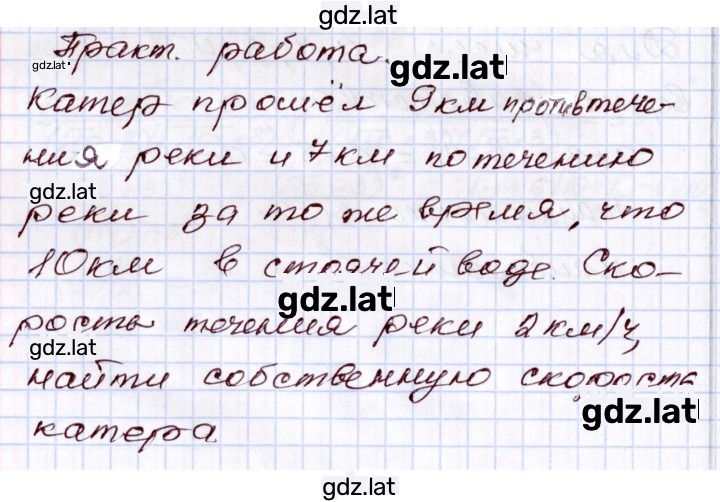 gdz.lat
Практ. работа.
gdz.lat
gdz.lat
Катер прошёл 9 км против тече-
ния реки и 7 км по течению
gdz.lat
реки за то же время, что
10 км в стоячей воде. Ско-
gdz.lat
рость течения реки 2 км/ч,
gdz.lat
найти собственную скорость
gdz.lat
катера
gdz.lat